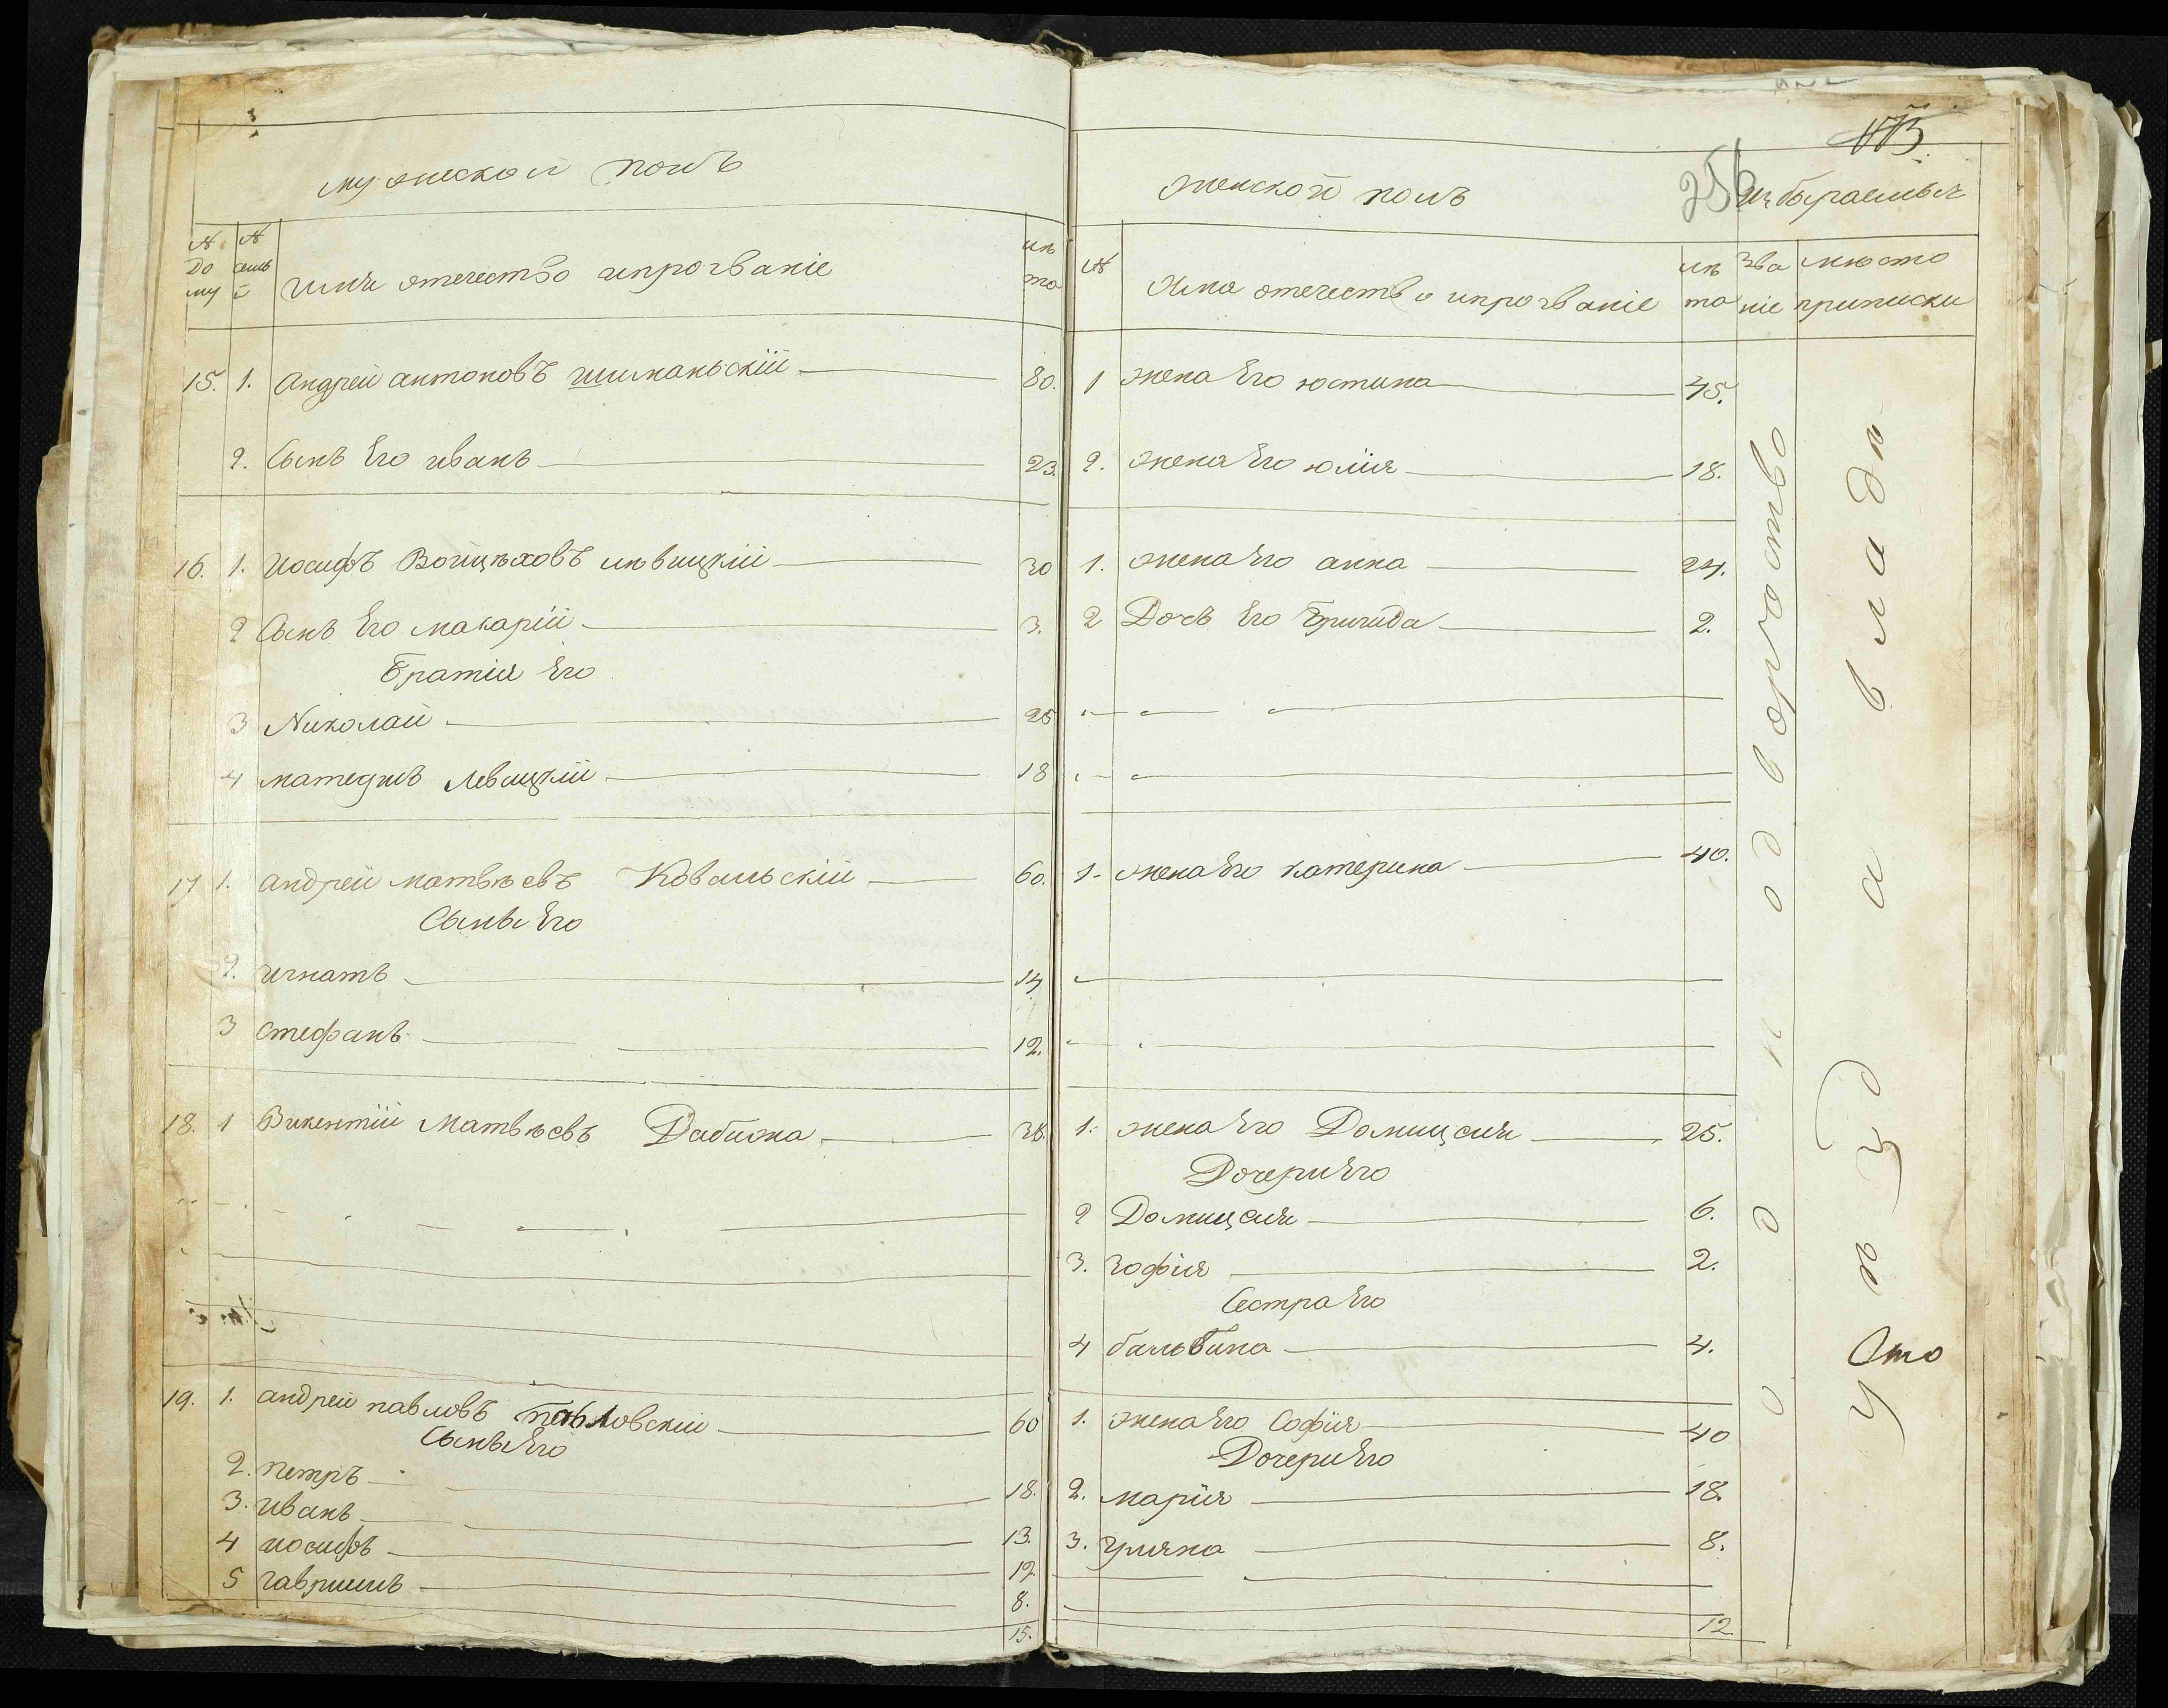 мужеской полъ
№ до му
№ семь й
имя отечество и прозваніе
лѣ та
15. 1. Андрей антоновъ шиманьскій 80.
2. Сынъ Его иванъ 23.
16. 1. Иосифъ Войцѣховъ лѣвицкій 30
2 Сынъ Его макарій 3.
братія Его
3 Николай 25
4 матеушъ левицкій 18
17 1. андрей матвѣевъ Ковальскій 60.
Сынъи Его
2. игнатъ 14
3 стефанъ 12.
18. 1 Викентій Матвѣевъ Дабиожа 38.
19. 1. андрей павловъ павловскій 60
Сынъи Его
2. петръ 18.
3. иванъ 13.
4 иосифъ 12
5 гаврішлъ 8.
15.
175
256
женской полъ
избираемыя
№
Имя отечество и прозваніе
лѣ та
зва ніе
мѣсто приписки
1 жена Его юстина 45.
2. жена Его юлія 18.
1. жена Его анна 24.
2 Дочь Его бригида 2.
1. жена Его катерина 40.
1. жена Его Домицеля 25.
Дочери Его
2 Домицеля 6.
3. зофія 2.
Сестра Его
4 бальбина 4.
1. жена Его Софія 40
Дочери Его
2. марія 18.
3. уляна 8.
12
околоподворчество
Уѣзда владѣ
Ото